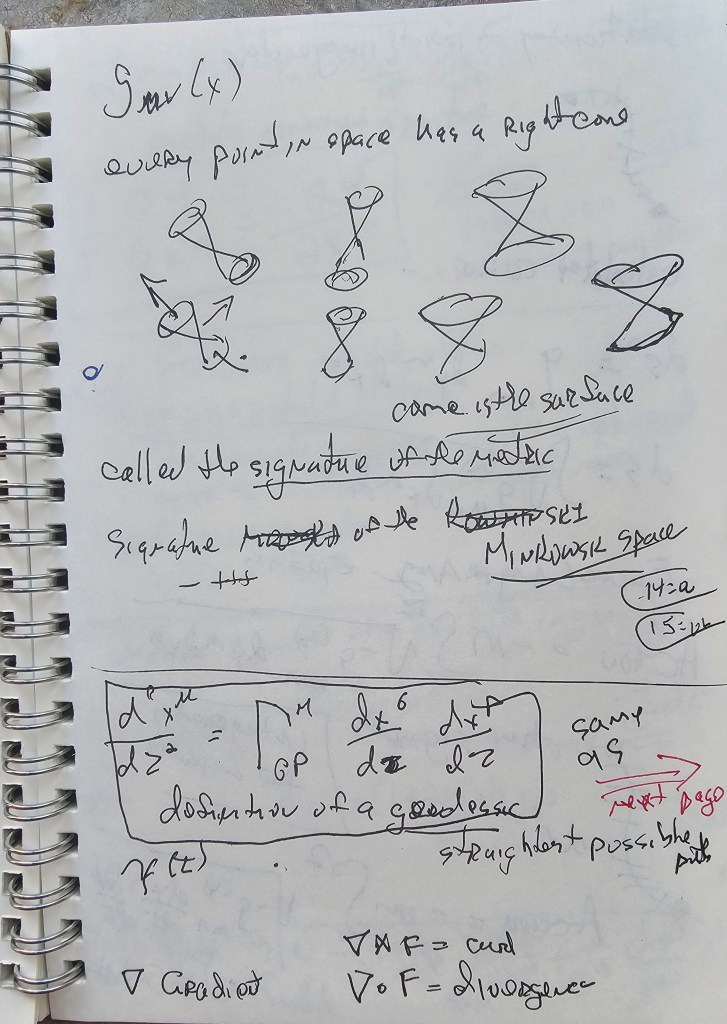 gμν(x)
every point in space has a light cone
cone is the surface
called the signature of the metric
Signature of the
MINKOWSKI space
- +++
14=a
d²x^μ/dτ² = Γ^μ_σρ dx^σ/dτ dx^ρ/dτ
same
as
next page
definition of a geodessic
straightest possible
path
∇ × F = curl
∇ Gradient
∇ · F = divergence